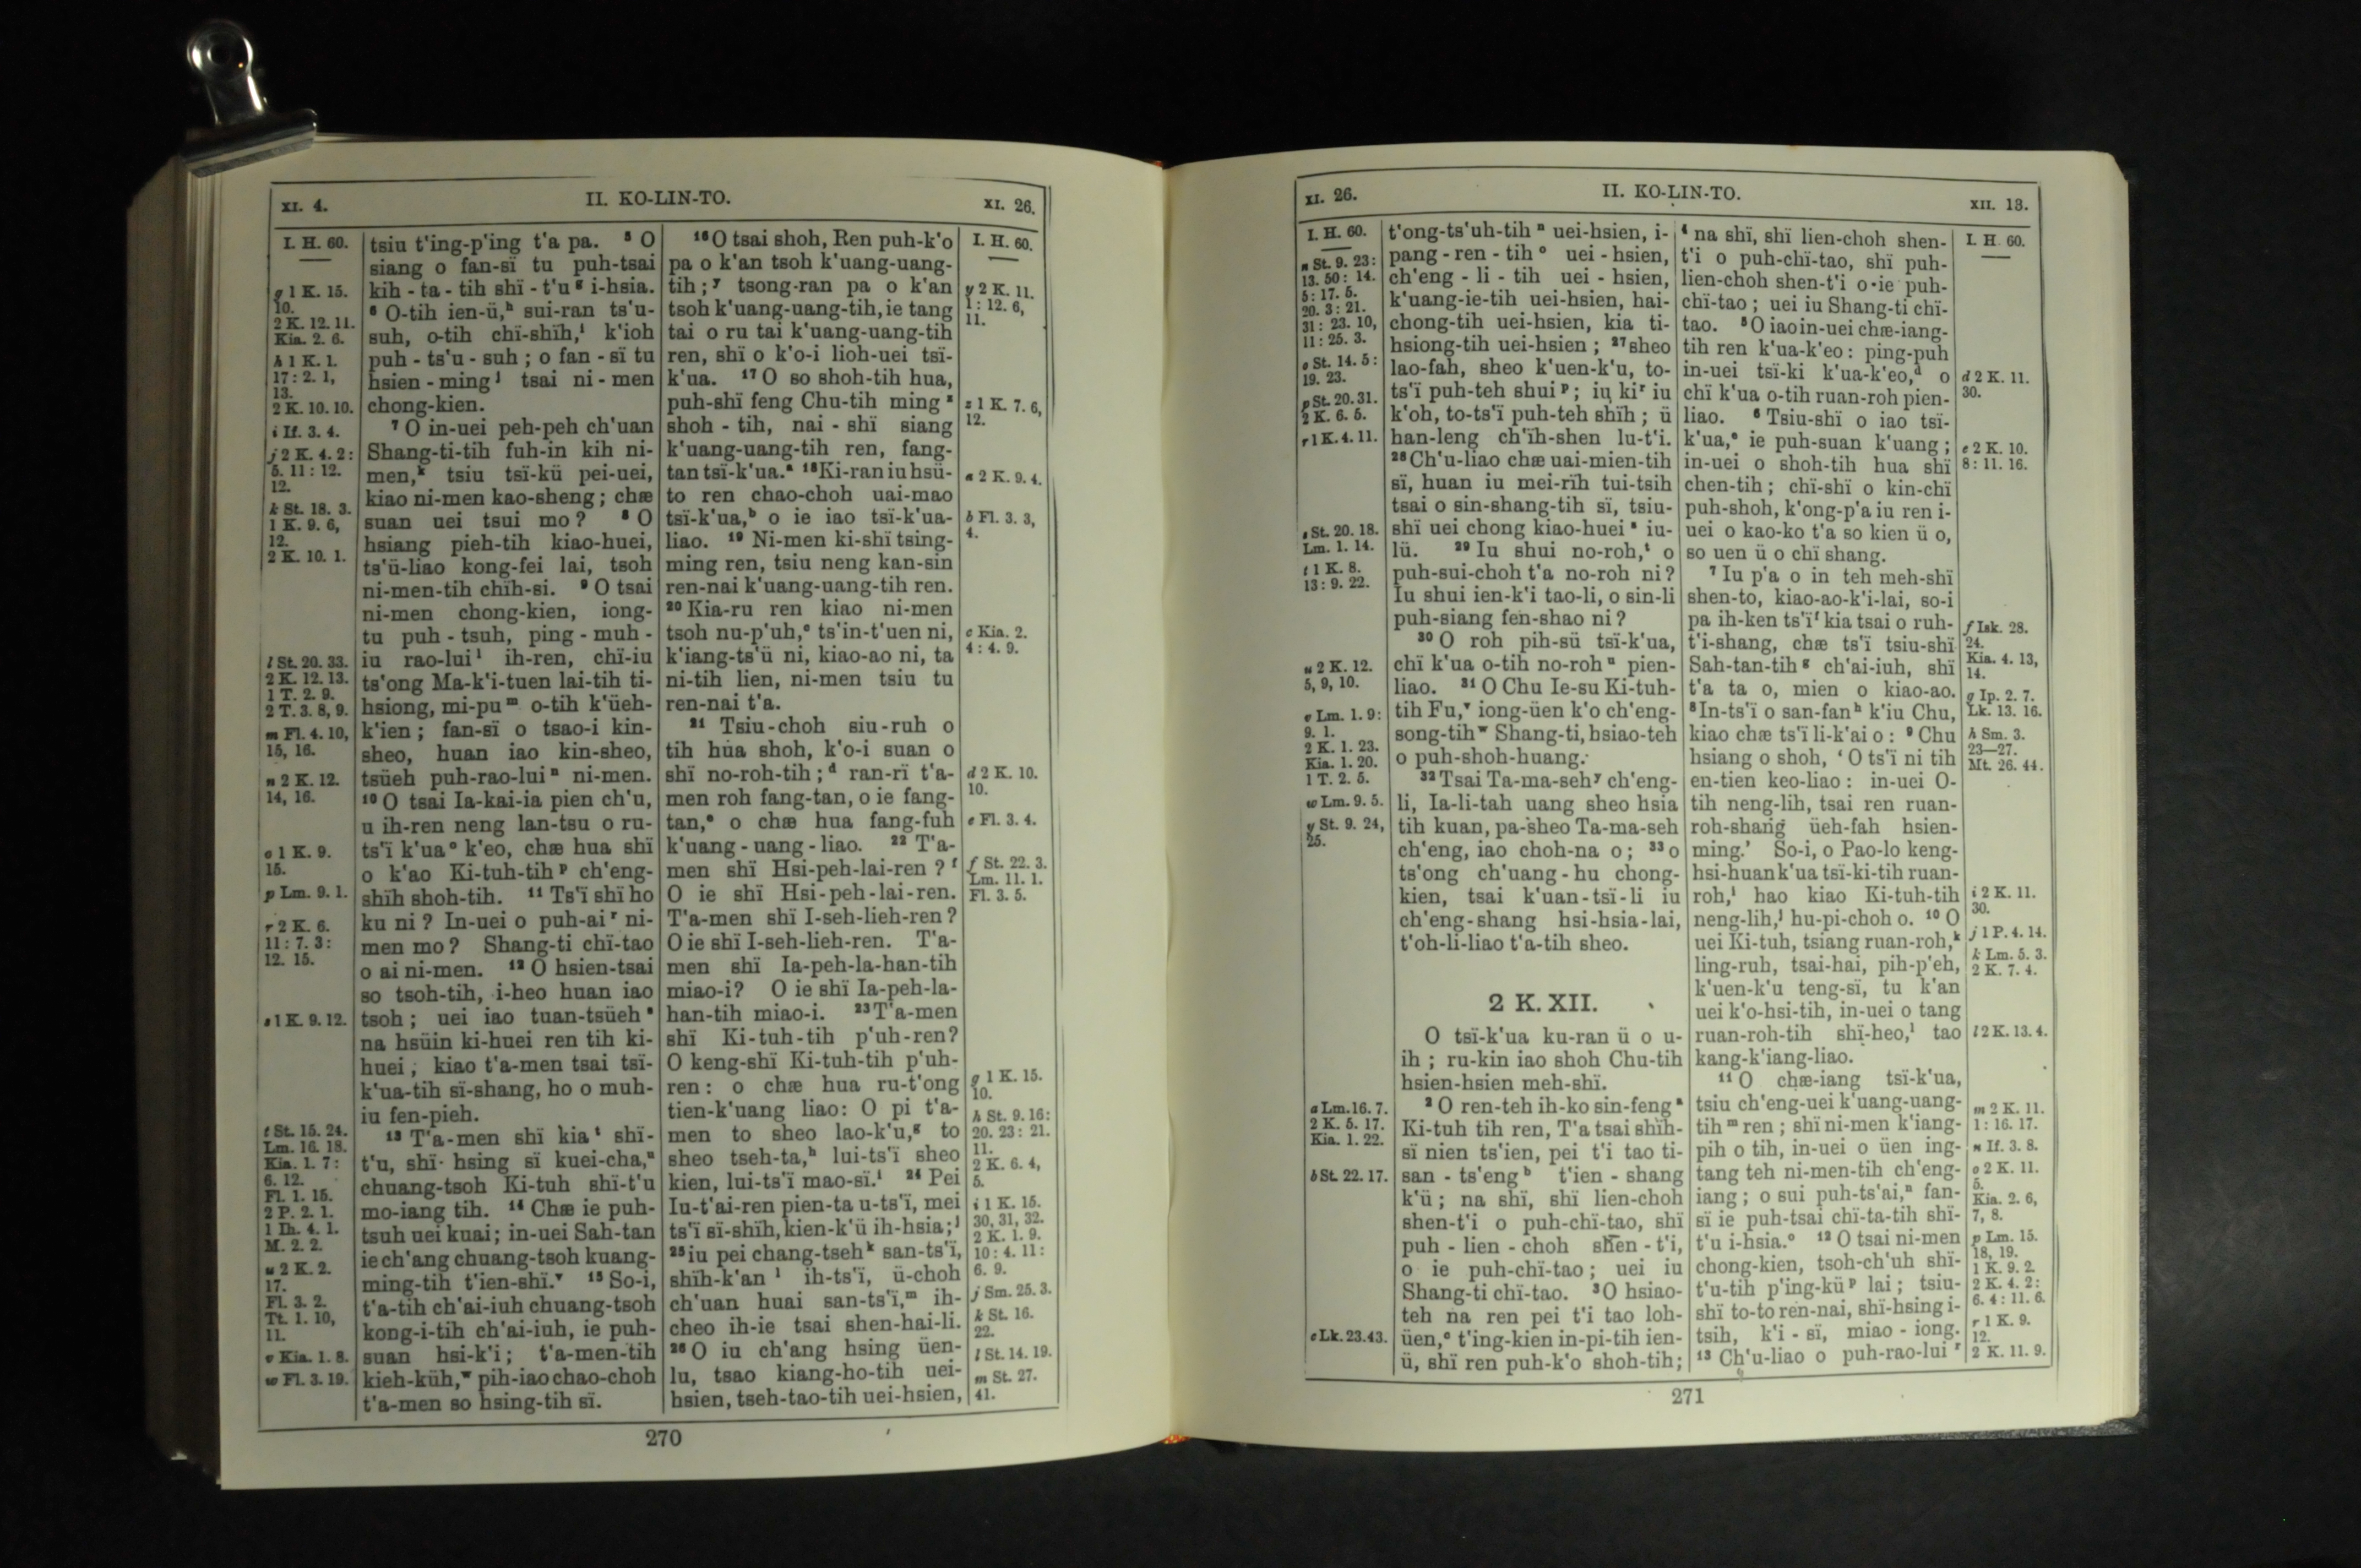 XI. 4.
II. KO-LIN-TO.
XI. 26.
I. H. 60.
g 1 K. 15.
10.
2 K. 12. 11.
Kia. 2. 6.
h 1 K. 1.
17: 2. 1,
13.
2 K. 10. 10.
i If. 3. 4.
j 2 K. 4. 2:
5. 11: 12.
12.
k St. 18. 3.
1 K. 9. 6,
12.
2 K. 10. 1.
l St. 20. 33.
2 K. 12. 13.
1 T. 2. 9.
2 T. 3. 8, 9.
m Fl. 4. 10,
15, 16.
n 2 K. 12.
14, 16.
o 1 K. 9.
15.
p Lm. 9. 1.
r 2 K. 6.
11: 7. 3:
12. 15.
s 1 K. 9. 12.
t St. 15. 24.
Lm. 16. 18.
Kia. 1. 7:
6. 12.
Fl. 1. 15.
2 P. 2. 1.
1 Ih. 4. 1.
M. 2. 2.
u 2 K. 2.
17.
Fl. 3. 2.
Tt. 1. 10,
11.
v Kia. 1. 8.
w Fl. 3. 19.
tsiu t'ing-p'ing t'a pa. ⁵ O
siang o fan-sï tu puh-tsai
kih - ta - tih shï - t'u ᵍ i-hsia.
⁶ O-tih ien-ü,ʰ sui-ran ts'u-
suh, o-tih chï-shïh,ⁱ k'ioh
puh - ts'u - suh ; o fan - sï tu
hsien - ming ʲ tsai ni - men
chong-kien.
⁷ O in-uei peh-peh ch'uan
Shang-ti-tih fuh-in kih ni-
men,ᵏ tsiu tsï-kü pei-uei,
kiao ni-men kao-sheng ; chæ
suan uei tsui mo ? ⁸ O
hsiang pieh-tih kiao-huei,
ts'ü-liao kong-fei lai, tsoh
ni-men-tih chïh-si. ⁹ O tsai
ni-men chong-kien, iong-
tu puh - tsuh, ping - muh -
iu rao-lui ˡ ih-ren, chï-iu
ts'ong Ma-k'i-tuen lai-tih ti-
hsiong, mi-pu ᵐ o-tih k'üeh-
k'ien ; fan-sï o tsao-i kin-
sheo, huan iao kin-sheo,
tsüeh puh-rao-lui ⁿ ni-men.
¹⁰ O tsai Ia-kai-ia pien ch'u,
u ih-ren neng lan-tsu o ru-
ts'ï k'ua ᵒ k'eo, chæ hua shï
o k'ao Ki-tuh-tih ᵖ ch'eng-
shïh shoh-tih. ¹¹ Ts'ï shï ho
ku ni ? In-uei o puh-ai ʳ ni-
men mo ? Shang-ti chï-tao
o ai ni-men. ¹² O hsien-tsai
so tsoh-tih, i-heo huan iao
tsoh ; uei iao tuan-tsüeh ˢ
na hsüin ki-huei ren tih ki-
huei ; kiao t'a-men tsai tsï-
k'ua-tih sï-shang, ho o muh-
iu fen-pieh.
¹³ T'a-men shï kia ᵗ shï-
t'u, shï hsing sï kuei-cha,ᵘ
chuang-tsoh Ki-tuh shï-t'u
mo-iang tih. ¹⁴ Chæ ie puh-
tsuh uei kuai ; in-uei Sah-tan
ie ch'ang chuang-tsoh kuang-
ming-tih t'ien-shï.ᵛ ¹⁵ So-i,
t'a-tih ch'ai-iuh chuang-tsoh
kong-i-tih ch'ai-iuh, ie puh-
suan hsi-k'i ; t'a-men-tih
kieh-küh,ʷ pih-iao chao-choh
t'a-men so hsing-tih sï.
¹⁶ O tsai shoh, Ren puh-k'o
pa o k'an tsoh k'uang-uang-
tih ;ʸ tsong-ran pa o k'an
tsoh k'uang-uang-tih, ie tang
tai o ru tai k'uang-uang-tih
ren, shï o k'o-i lioh-uei tsï-
k'ua. ¹⁷ O so shoh-tih hua,
puh-shï feng Chu-tih ming ᶻ
shoh - tih, nai - shï siang
k'uang-uang-tih ren, fang-
tan tsï-k'ua.ᵃ ¹⁸ Ki-ran iu hsü-
to ren chao-choh uai-mao
tsï-k'ua,ᵇ o ie iao tsï-k'ua-
liao. ¹⁹ Ni-men ki-shï tsing-
ming ren, tsiu neng kan-sin
ren-nai k'uang-uang-tih ren.
²⁰ Kia-ru ren kiao ni-men
tsoh nu-p'uh,ᶜ ts'in-t'uen ni,
k'iang-ts'ü ni, kiao-ao ni, ta
ni-tih lien, ni-men tsiu tu
ren-nai t'a.
²¹ Tsiu-choh siu-ruh o
tih hua shoh, k'o-i suan o
shï no-roh-tih ;ᵈ ran-rï t'a-
men roh fang-tan, o ie fang-
tan,ᵉ o chæ hua fang-fuh
k'uang - uang - liao. ²² T'a-
men shï Hsi-peh-lai-ren ? ᶠ
O ie shï Hsi-peh-lai-ren.
T'a-men shï I-seh-lieh-ren ?
O ie shï I-seh-lieh-ren. T'a-
men shï Ia-peh-la-han-tih
miao-i? O ie shï Ia-peh-la-
han-tih miao-i. ²³ T'a-men
shï Ki-tuh-tih p'uh-ren?
O keng-shï Ki-tuh-tih p'uh-
ren : o chæ hua ru-t'ong
tien-k'uang liao: O pi t'a-
men to sheo lao-k'u,ᵍ to
sheo tseh-ta,ʰ lui-ts'ï sheo
kien, lui-ts'ï mao-sï.ⁱ ²⁴ Pei
Iu-t'ai-ren pien-ta u-ts'ï, mei
ts'ï sï-shïh, kien-k'ü ih-hsia ;ʲ
²⁵ iu pei chang-tseh ᵏ san-ts'ï,
shïh-k'an ˡ ih-ts'ï, ü-choh
ch'uan huai san-ts'ï,ᵐ ih-
cheo ih-ie tsai shen-hai-li.
²⁶ O iu ch'ang hsing üen-
lu, tsao kiang-ho-tih uei-
hsien, tseh-tao-tih uei-hsien,
I. H. 60.
y 2 K. 11.
1: 12. 6,
11.
z 1 K. 7. 6,
12.
a 2 K. 9. 4.
b Fl. 3. 3,
4.
c Kia. 2.
4: 4. 9.
d 2 K. 10.
10.
e Fl. 3. 4.
f St. 22. 3.
Lm. 11. 1.
Fl. 3. 5.
g 1 K. 15.
10.
h St. 9. 16:
20. 23: 21.
11.
2 K. 6. 4,
5.
i 1 K. 15.
30, 31, 32.
2 K. 1. 9.
10: 4. 11:
6. 9.
j Sm. 25. 3.
k St. 16.
22.
l St. 14. 19.
m St. 27.
41.
270
XI. 26.
II. KO-LIN-TO.
XII. 13.
I. H. 60.
n St. 9. 23:
13. 50: 14.
5: 17. 5.
20. 3: 21.
31: 23. 10,
11: 25. 3.
o St. 14. 5:
19. 23.
p St. 20. 31.
2 K. 6. 5.
r 1 K. 4. 11.
s St. 20. 18.
Lm. 1. 14.
t 1 K. 8.
13: 9. 22.
u 2 K. 12.
5, 9, 10.
v Lm. 1. 9:
9. 1.
2 K. 1. 23.
Kia. 1. 20.
1 T. 2. 5.
w Lm. 9. 5.
y St. 9. 24,
25.
a Lm. 16. 7.
2 K. 5. 17.
Kia. 1. 22.
b St. 22. 17.
c Lk. 23. 43.
t'ong-ts'uh-tih ⁿ uei-hsien, i-
pang - ren - tih ᵒ uei - hsien,
ch'eng - li - tih uei - hsien,
k'uang-ie-tih uei-hsien, hai-
chong-tih uei-hsien, kia ti-
hsiong-tih uei-hsien ; ²⁷ sheo
lao-fah, sheo k'uen-k'u, to-
ts'ï puh-teh shui ᵖ ; iu ki ʳ iu
k'oh, to-ts'ï puh-teh shïh ; ü
han-leng ch'ïh-shen lu-t'i.
²⁸ Ch'u-liao chæ uai-mien-tih
sï, huan iu mei-rïh tui-tsih
tsai o sin-shang-tih sï, tsiu-
shï uei chong kiao-huei ˢ iu-
lü. ²⁹ Iu shui no-roh,ᵗ o
puh-sui-choh t'a no-roh ni ?
Iu shui ien-k'i tao-li, o sin-li
puh-siang fen-shao ni ?
³⁰ O roh pih-sü tsï-k'ua,
chï k'ua o-tih no-roh ᵘ pien-
liao. ³¹ O Chu Ie-su Ki-tuh-
tih Fu,ᵛ iong-üen k'o ch'eng-
song-tih ʷ Shang-ti, hsiao-teh
o puh-shoh-huang.
³² Tsai Ta-ma-seh ʸ ch'eng-
li, Ia-li-tah uang sheo hsia
tih kuan, pa-sheo Ta-ma-seh
ch'eng, iao choh-na o ; ³³ o
ts'ong ch'uang - hu chong-
kien, tsai k'uan-tsï-li iu
ch'eng-shang hsi-hsia-lai,
t'oh-li-liao t'a-tih sheo.
2 K. XII.
O tsï-k'ua ku-ran ü o u-
ih ; ru-kin iao shoh Chu-tih
hsien-hsien meh-shï.
² O ren-teh ih-ko sin-feng ᵃ
Ki-tuh tih ren, T'a tsai shïh-
sï nien ts'ien, pei t'i tao ti-
san - ts'eng ᵇ t'ien - shang
k'ü ; na shï, shï lien-choh
shen-t'i o puh-chï-tao, shï
puh - lien - choh shen - t'i,
o ie puh-chï-tao ; uei iu
Shang-ti chï-tao. ³ O hsiao-
teh na ren pei t'i tao loh-
üen,ᶜ t'ing-kien in-pi-tih ien-
ü, shï ren puh-k'o shoh-tih;
⁴ na shï, shï lien-choh shen-
t'i o puh-chï-tao, shï puh-
lien-choh shen-t'i o ie puh-
chï-tao ; uei iu Shang-ti chï-
tao. ⁵ O iao in-uei chæ-iang-
tih ren k'ua-k'eo : ping-puh
in-uei tsï-ki k'ua-k'eo,ᵈ o
chï k'ua o-tih ruan-roh pien-
liao. ⁶ Tsiu-shï o iao tsï-
k'ua,ᵉ ie puh-suan k'uang ;
in-uei o shoh-tih hua shï
chen-tih ; chï-shï o kin-chï
puh-shoh, k'ong-p'a iu ren i-
uei o kao-ko t'a so kien ü o,
so uen ü o chï shang.
⁷ Iu p'a o in teh meh-shï
shen-to, kiao-ao-k'i-lai, so-i
pa ih-ken ts'ï ᶠ kia tsai o ruh-
t'i-shang, chæ ts'ï tsiu-shï
Sah-tan-tih ᵍ ch'ai-iuh, shï
t'a ta o, mien o kiao-ao.
⁸ In-ts'ï o san-fan ʰ k'iu Chu,
kiao chæ ts'ï li-k'ai o : ⁹ Chu
hsiang o shoh, ‘ O ts'ï ni tih
en-tien keo-liao : in-uei O-
tih neng-lih, tsai ren ruan-
roh-shang üeh-fah hsien-
ming.’ So-i, o Pao-lo keng-
hsi-huan k'ua tsï-ki-tih ruan-
roh,ⁱ hao kiao Ki-tuh-tih
neng-lih,ʲ hu-pi-choh o. ¹⁰ O
uei Ki-tuh, tsiang ruan-roh,ᵏ
ling-ruh, tsai-hai, pih-p'eh,
k'uen-k'u teng-sï, tu k'an
uei k'o-hsi-tih, in-uei o tang
ruan-roh-tih shï-heo,ˡ tao
kang-k'iang-liao.
¹¹ O chæ-iang tsï-k'ua,
tsiu ch'eng-uei k'uang-uang-
tih ᵐ ren ; shï ni-men k'iang-
pih o tih, in-uei o üen ing-
tang teh ni-men-tih ch'eng-
iang ; o sui puh-ts'ai,ⁿ fan-
sï ie puh-tsai chï-ta-tih shï-
t'u i-hsia.ᵒ ¹² O tsai ni-men
chong-kien, tsoh-ch'uh shï-
t'u-tih p'ing-kü ᵖ lai ; tsiu-
shï to-to ren-nai, shï-hsing i-
tsih, k'i - sï, miao - iong.
¹³ Ch'u-liao o puh-rao-lui ʳ
I. H. 60.
d 2 K. 11.
30.
e 2 K. 10.
8: 11. 16.
f Isk. 28.
24.
Kia. 4. 13,
14.
g Ip. 2. 7.
Lk. 13. 16.
h Sm. 3.
23—27.
Mt. 26. 44.
i 2 K. 11.
30.
j 1 P. 4. 14.
k Lm. 5. 3.
2 K. 7. 4.
l 2 K. 13. 4.
m 2 K. 11.
1: 16. 17.
n If. 3. 8.
o 2 K. 11.
5.
Kia. 2. 6,
7, 8.
p Lm. 15.
18, 19.
1 K. 9. 2.
2 K. 4. 2:
6. 4: 11. 6.
r 1 K. 9.
12.
2 K. 11. 9.
271